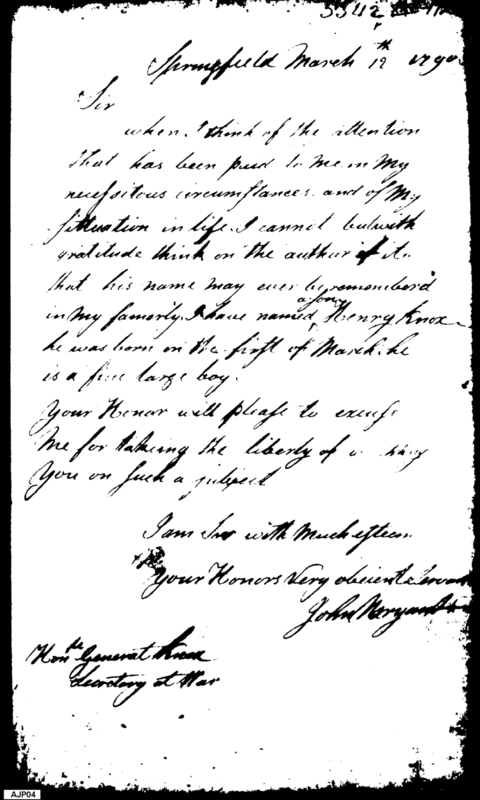 Springfield March 12th 1790
Sir
when I think of the attention
that has been paid to me in My
necessitous circumstances and of My
sittuation in life I cannot but with
gratitude think on the author of it.
that his name may ever be remember'd
a son
in my famerly I have named, Henry Knox
he was born on the first of March. he
is a fine large boy.
Your Honor will please to excuse
Me for taking the liberty of
You on Such a subject
I am Sir with Much esteem
Your Honors Very obcient Servant
John Bryant
Honble General Knox
Secretary at War
AJP04